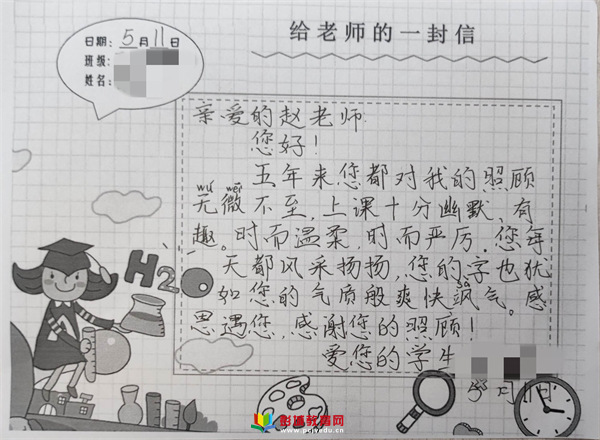 给老师的一封信
日期：5月11日
班级：
姓名：
亲爱的赵老师：
您好！
五年来您都对我的照顾
wú wēi
无微不至，上课十分幽默，有
趣。时而温柔，时而严厉。您每
天都风采扬扬，您的字也犹
sà
如您的气质般爽快飒气。感
恩遇您，感谢您的照顾！
爱您的学生
5月11日
H2O
彭城教育网
www.pcjyedu.cn